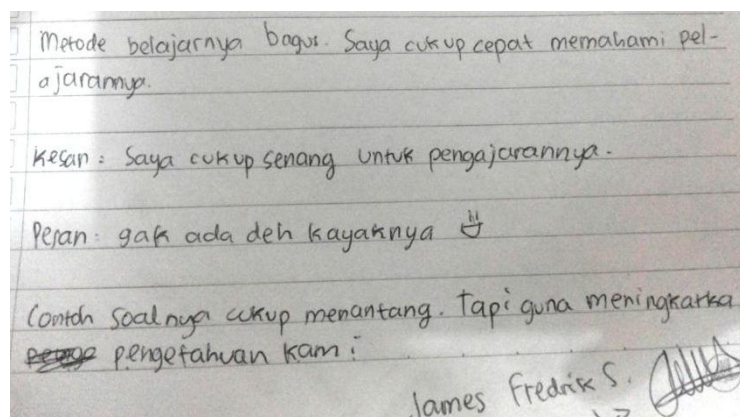 Metode belajarnya bagus. Saya cukup cepat memahami pel-
ajarannya.
Kesan: Saya cukup senang untuk pengajarannya.
Pesan: gak ada deh kayaknya
Contoh soalnya cukup menantang. Tapi guna meningkatka
pengetahuan kami
James Fredrik S.